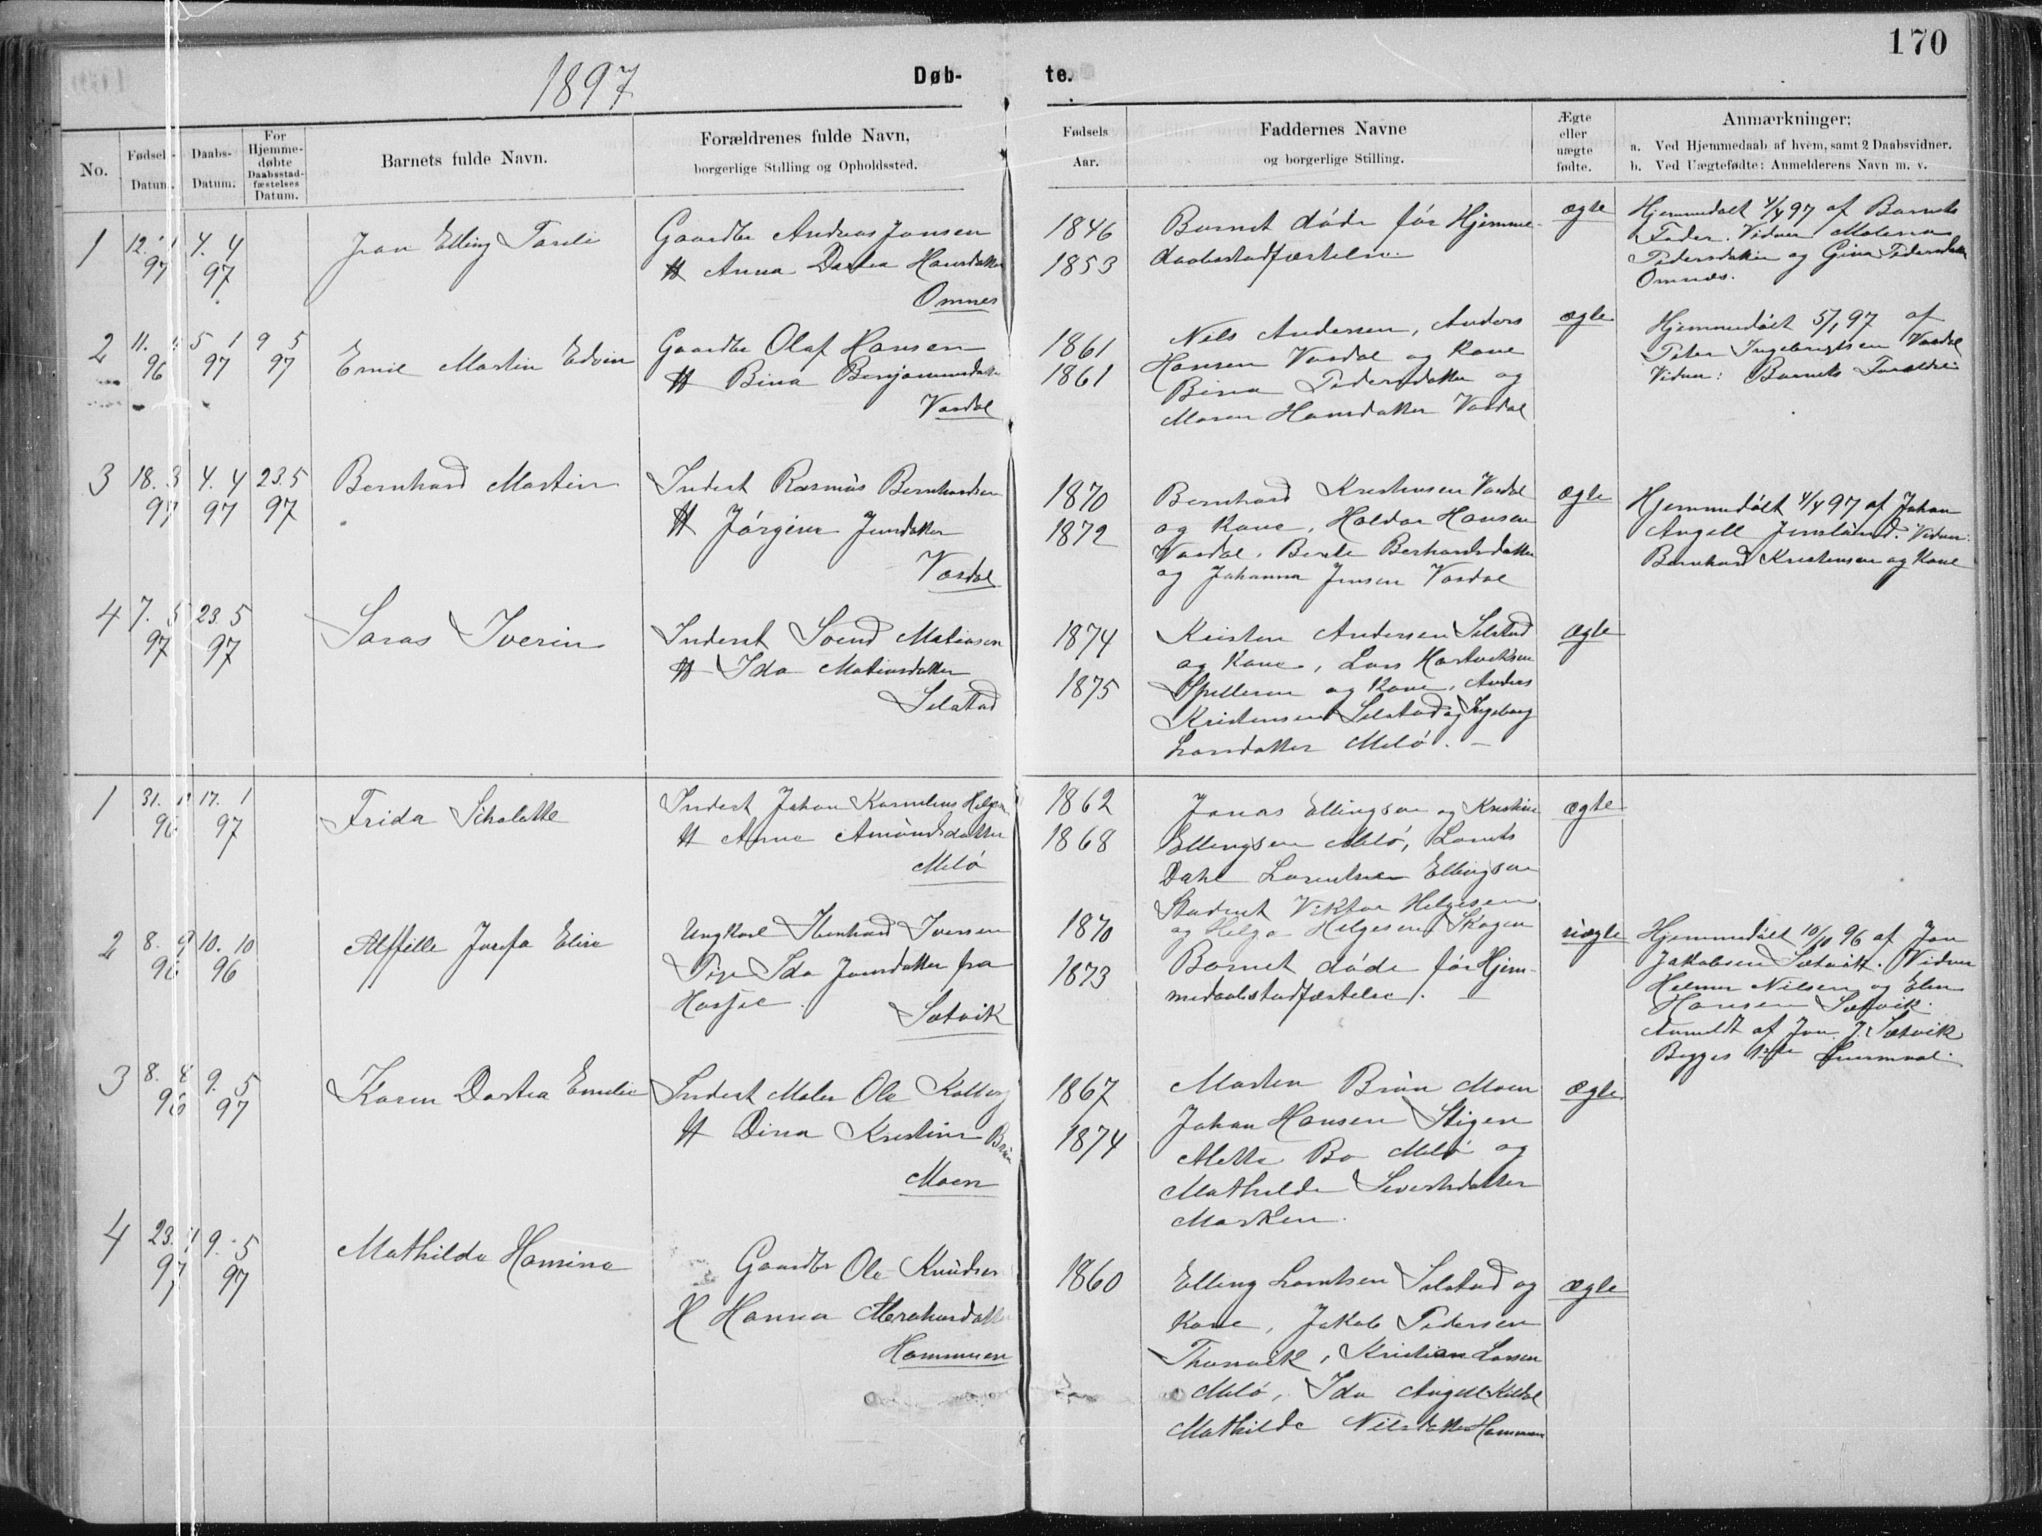 170
1897
Døb-
te.
No.
Fødsels-
Datum.
Daabs-
Datum.
For
Hjemme-
døbte
Daabsstad-
fæstelses
Datum.
Barnets fulde Navn.
Forældrenes fulde Navn,
borgerlige Stilling og Opholdssted.
Fødsels
Aar.
Faddernes Navne
og borgerlige Stilling.
Ægte
eller
uægte
fødte.
Anmærkninger:
a. Ved Hjemmedaab af hvem, samt 2 Daabsvidner.
b. Ved Uægtefødte: Anmelderens Navn m. v.
1
12. 1
97
4. 4
97
Elling
Gaardbr Andreas Jonsen
H Anna Dortea Hansdatter
Omnes
1846
1853
Barnet døde før Hjemme-
daabsstadfæstelse.
ægte
Hjemmedøbt 4/4 97 af Barnets
Fader. Vidner
Pedersdatter og Gina Pedersdatter
Omnæs.
2
11.
96
5 1
97
9 5
97
Emil Martin Edvin
Gaardbr Olaf Hansen
H Bina Benjaminsdatter
Vardal
1861
1861
Nils Andersen, Anders
Hansen Vardal og Kone
Bina Pedersdatter og
Maren Hansdatter Vardal
ægte
Hjemmedøbt 5/1 97 af
Peter Ingebrigtsen Vardal
Vidner: Barnets Forældre
3
18. 3
97
4. 4
97
23. 5
97
Bernhard Martin
Inderst Rasmus Bernhardsen
H Jørgine Jensdatter
Vardal
1870
1872
Bernhard Kristensen Vardal
og Kone, Haldor Hansen
Vardal, Berte Berhardsdatter
og Johanna Jensen Vardal
ægte
Hjemmedøbt 4/4 97 af Johan
Angell. Vidner:
Bernhard Kristensen og Kone
4
7. 5
97
23. 5
97
Iverin
Inderst Svend Matiasen
H Ida Matiasdatter
Selstad
1874
1875
Kristen Andersen Selstad
og Kone, Lars Hartviksen
og Kone, Anders
Kristensen Selstad og Ingeborg
Larsdatter Melø. –
ægte
1
31.
96
17. 1
97
Frida
Inderst Johan Kornelius Helgesen
H Anne Amundsdatter
Melø
1862
1868
Jonas Ellingsen og Kristine
Ellingsen Melø,
Dahl Ellingsen
Student Viktor Helgesen
og Helga Helgesen Skogen
ægte
2
8. 9
96
10. 10
96
Josefa Elise
Ungkarl Iversen
Pige Ida Jonsdatter fra
Sætvik
1870
1873
Barnet døde før Hjem-
medaabsstadfæstelse.
uægte
Hjemmedøbt 10/10 96 af Jon
Jakobsen Sætvik. Vidner
Helmer Nilsen og Elen
Hansen Sætvik.
Anmeldt af Jon J. Sætvik
Begges 1ste Leiermaal.
3
8. 8
96
9. 5
97
Karen Dortea Emilie
Inderst Maler Ole Kolberg
H Dina Kristine Brun
Moen
1867
1874
Morten Brun Moen
Johan Hansen Stigen
Mette Bo Melø og
Mathilde Sivertsdatter
Marken.
ægte
4
23. 1
97
9. 5
97
Mathilde Hansine
Gaardbr Ole Knudsen
H Hanna Abrahamsdatter
Hammeren
1860
Elling Lorntsen Selstad og
Kone, Jakob Pedersen
Thonvik, Kristian Larsen
Melø, Ida Angell Kildal
Mathilde Nilsdatter Hammeren
ægte